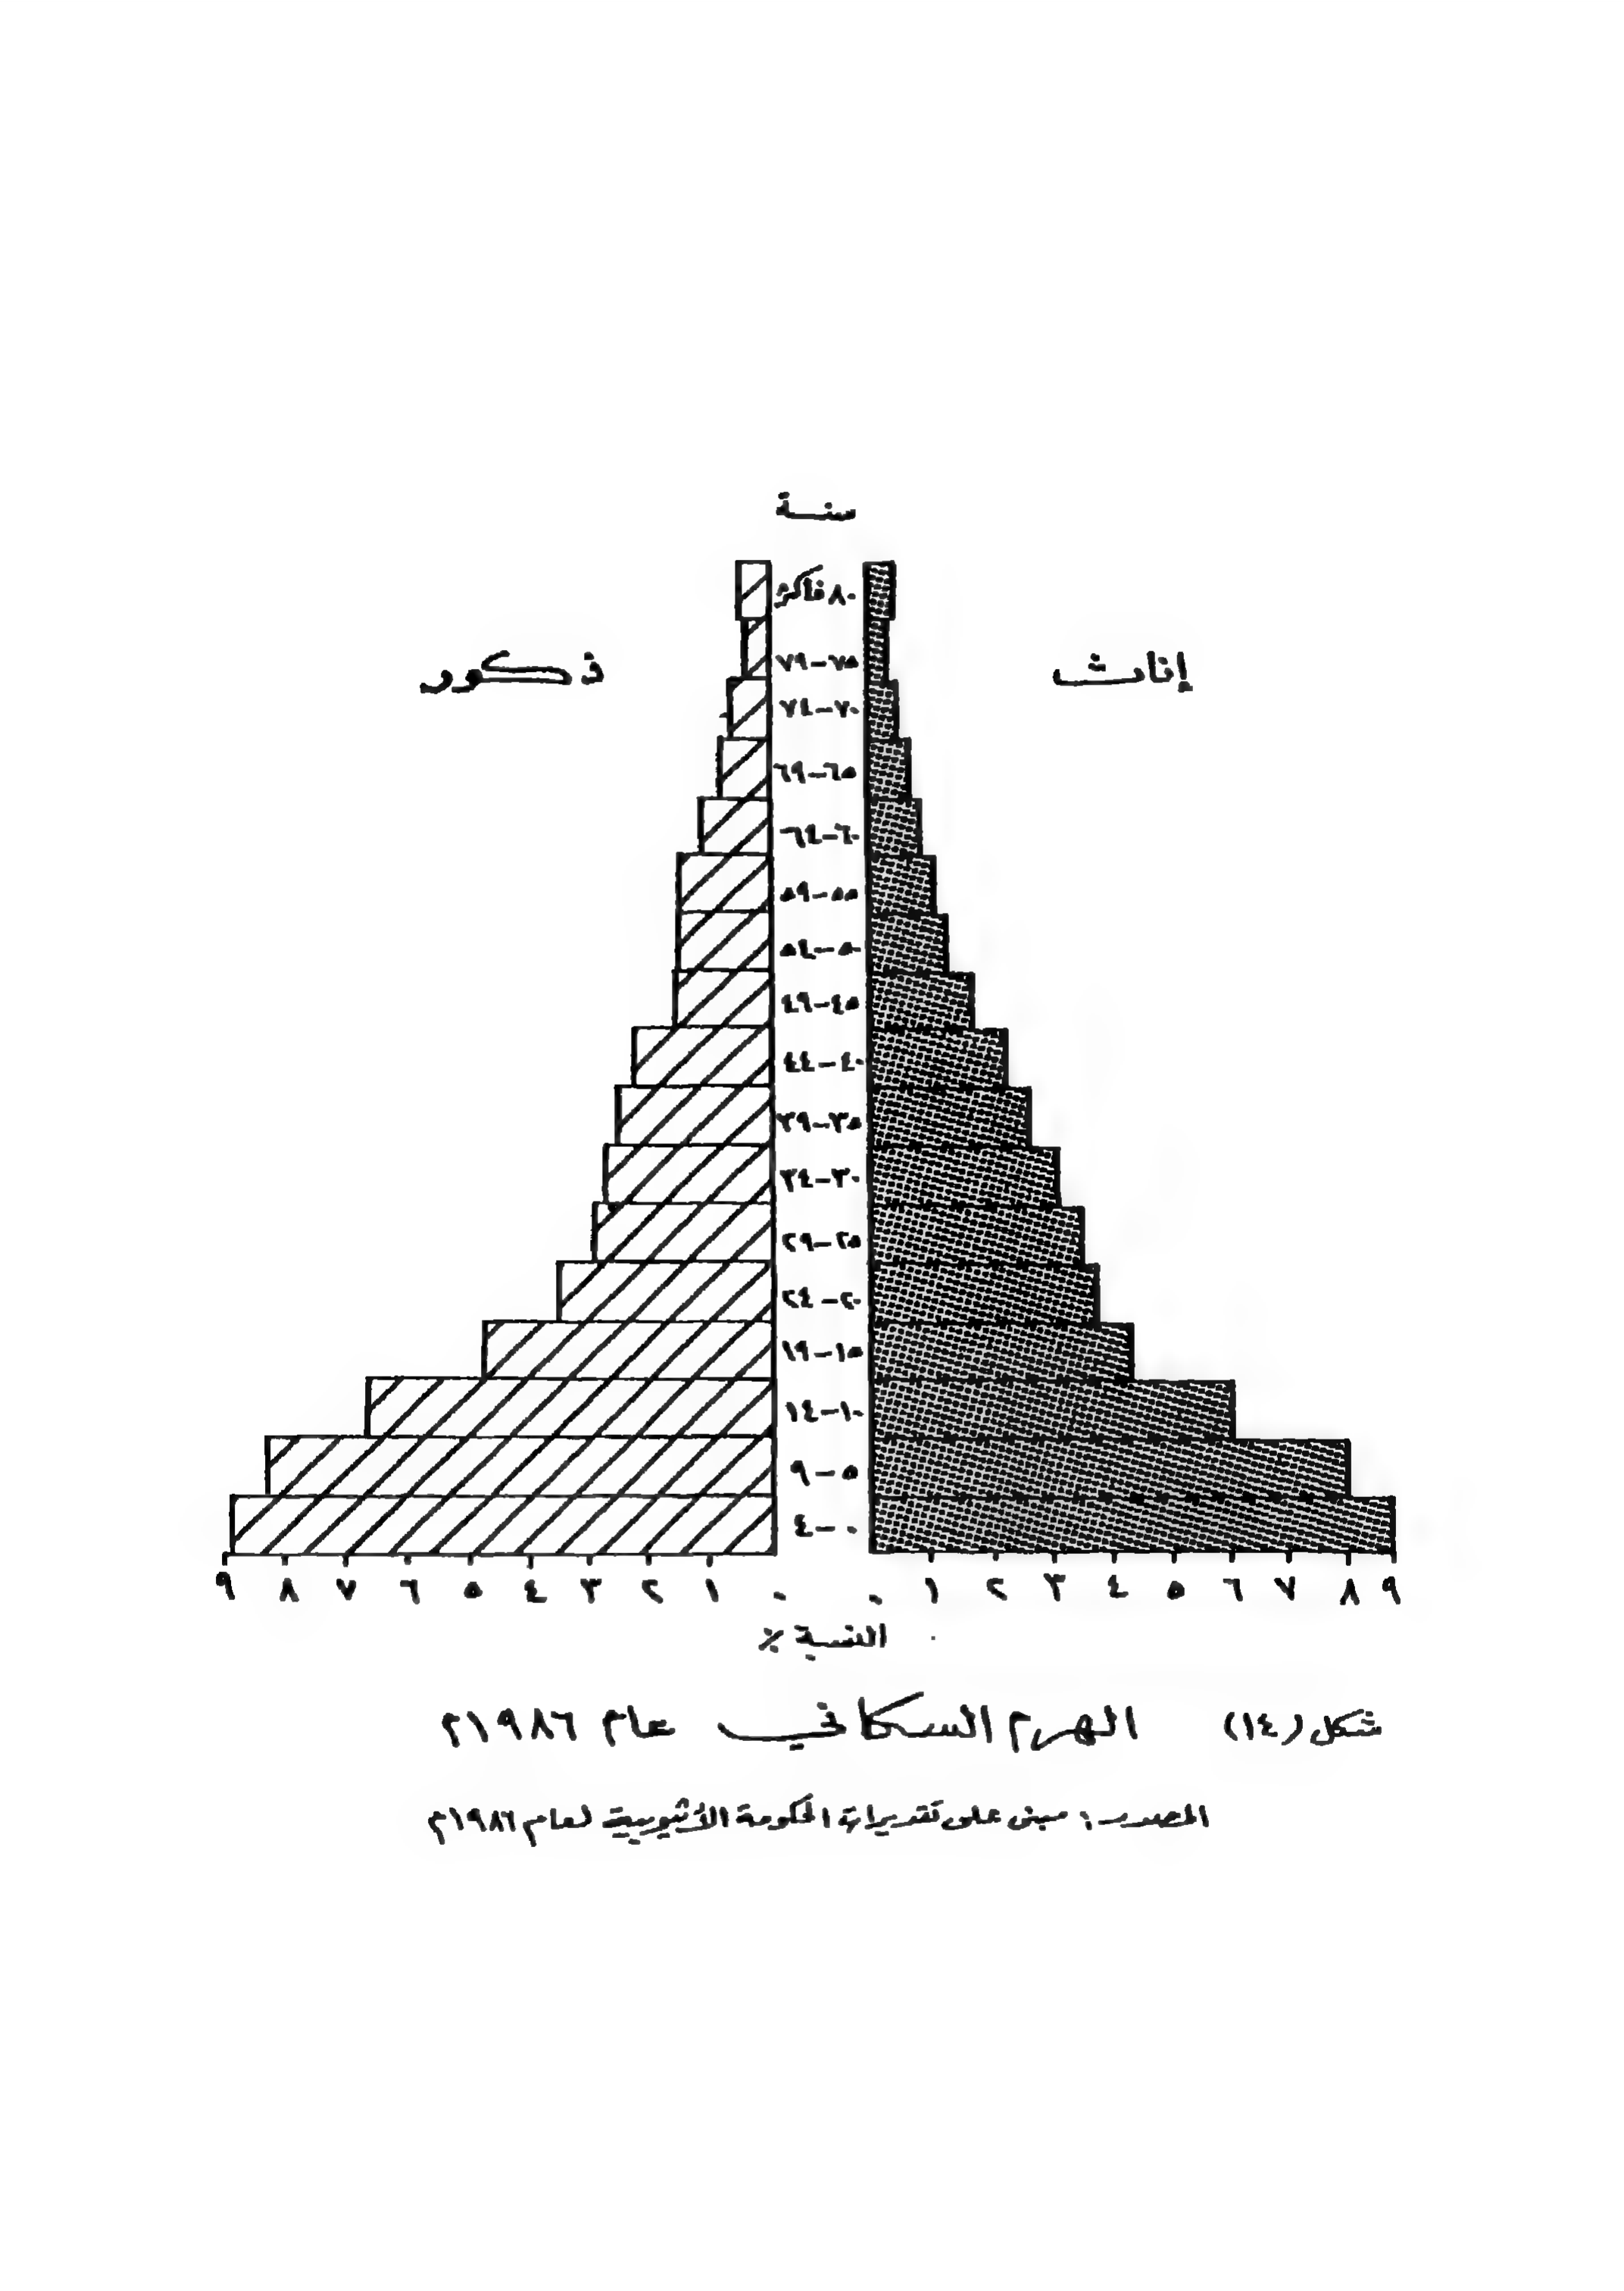 سنة
٨٠ فأكثر
إناث
ذكور
٧٥-٧٩
٧٠-٧٤
٦٥-٦٩
٦٠-٦٤
٥٥-٥٩
٥٠-٥٤
٤٥-٤٩
٤٠-٤٤
٣٥-٣٩
٣٠-٣٤
٢٥-٢٩
٢٠-٢٤
١٥-١٩
١٠-١٤
٥-٩
٠-٤
٩ ٨ ٧ ٦ ٥ ٤ ٣ ٢ ١ ٠ ٠ ١ ٢ ٣ ٤ ٥ ٦ ٧ ٨ ٩
النسبة ٪
شكل (١٤) الهرم السكاني عام ١٩٨٦م
المصدر: مبنى على تقديرات الحكومة الأثيوبية لعام ١٩٨٦م